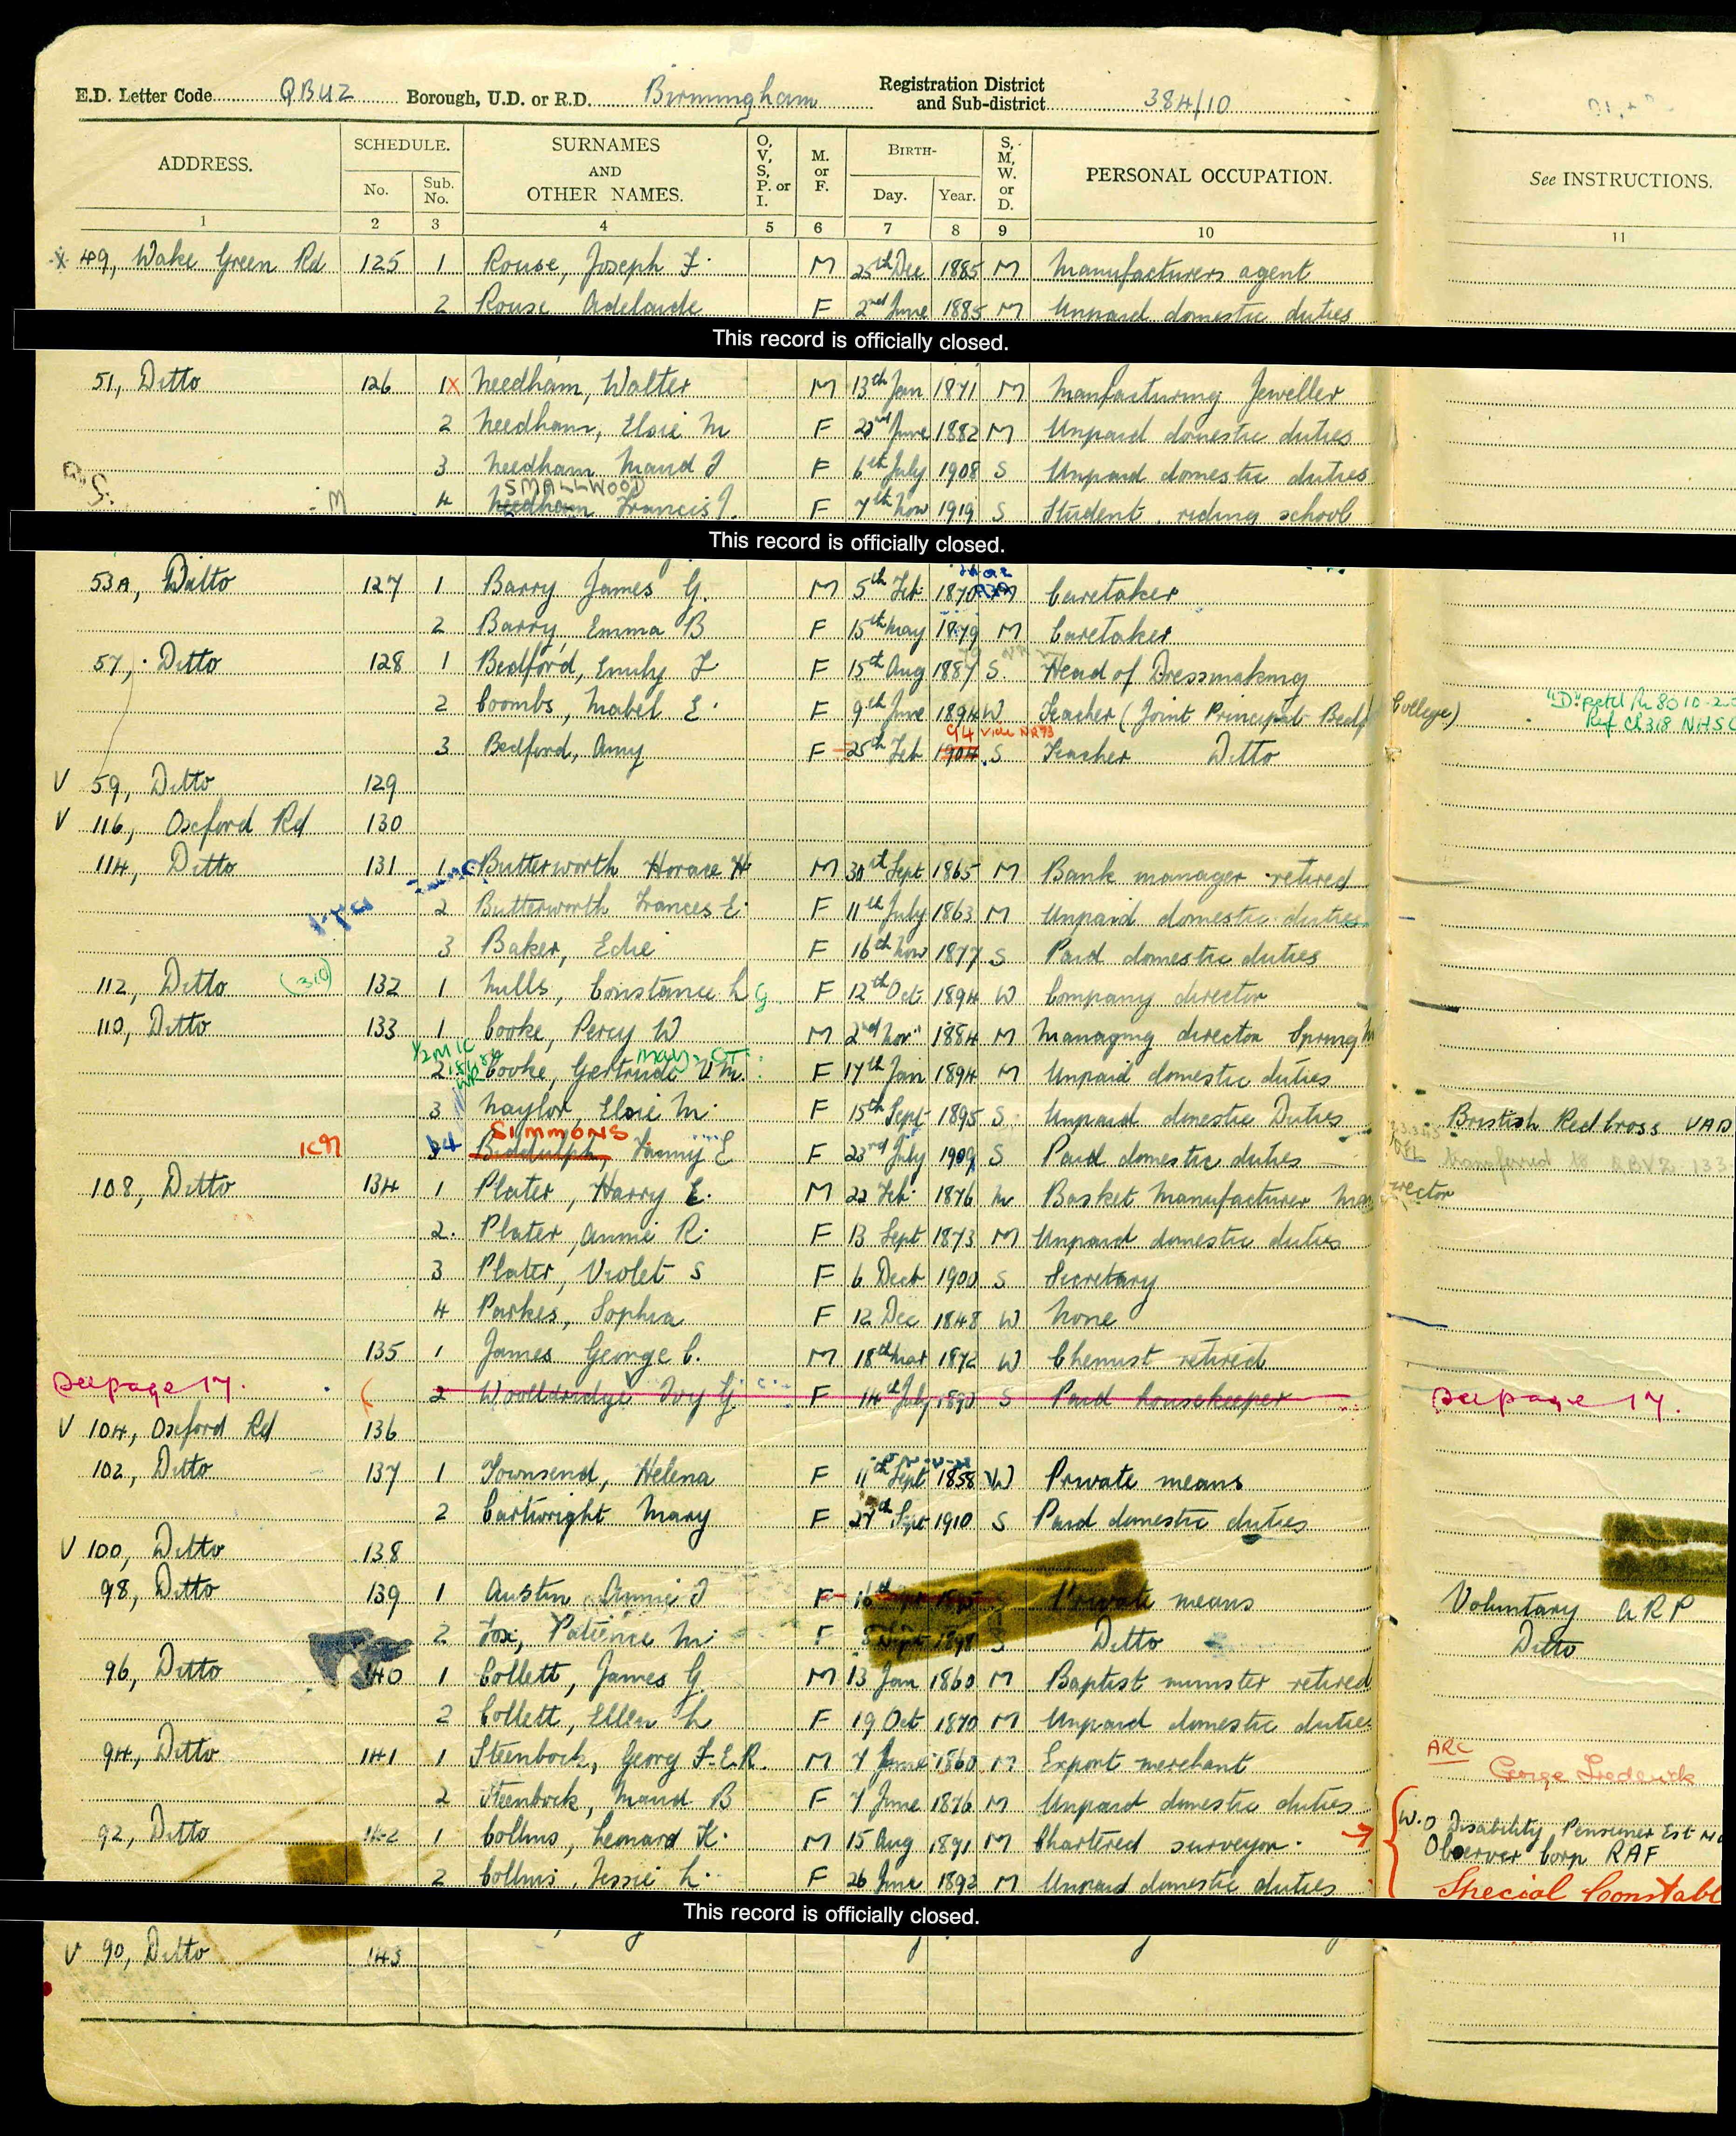 E.D. Letter Code QBUZ Borough, U.D. or R.D. Birmingham Registration District and Sub-district 384/10
ADDRESS. SCHEDULE. No. Sub. No. SURNAMES AND OTHER NAMES. O, V, S, P. or I. M. or F. BIRTH- Day. Year. S, M, W. or D. PERSONAL OCCUPATION. See INSTRUCTIONS.
1 2 3 4 5 6 7 8 9 10 11
49, Wake Green Rd 125 1 Rouse, Joseph F. M 25th Dec 1885 M Manufacturers agent
2 Rouse Adelaide F 2nd June 1885 M Unpaid domestic duties
This record is officially closed.
51, Ditto 126 1 X Needham, Walter M 13th Jan 1871 M Manfacturing Jeweller
2 Needham, Elsie M F 22nd June 1882 M Unpaid domestic duties
3 Needham Maud J F 6th July 1908 S Unpaid domestic duties
SMALLWOOD
M 4 Needham Francis J. F 7th Nov 1919 S Student riding school
This record is officially closed.
53A, Ditto 127 1 Barry James G. M 5th Feb 1870 M Caretaker
2 Barry, Emma B F 15th May 1879 M Caretaker
57, Ditto 128 1 Bedford, Emily F F 15th Aug 1887 S. Head of Dressmaking
2 Coombs, Mabel E. F 9th June 1894 W Teacher (Joint Principal Bedf College)
94 vide NR93
3 Bedford, Amy F 25th Feb 1904 S Teacher Ditto
V 59, Ditto 129
V 116, Oxford Rd 130
114, Ditto 131 1 Butterworth Horace H M 30st Sept 1865 M Bank manager retired
2 Butterworth Frances E. F 11th July 1863 M Unpaid domestic duties
3 Baker, Edie F 16th Nov 1877 S Paid domestic duties
112, Ditto (310) 132 1 Mills, Constance L G F 12th Oct 1894 W Company director
110, Ditto 133 1 Cooke, Percy W M 2nd Nov 1884 M Managing director Spring M
2 Cooke, Gertrude V.M. F 17th Jan 1894 M Unpaid domestic duties
3 Naylor, Elsie M. F 15th Sept 1895 S. Unpaid domestic Duties British Red Cross VAD
SIMMONS
4 Biddulph, Fanny E F 23rd July 1909 S Paid domestic duties transferred to QBVZ 133
108, Ditto 134 1 Plater, Harry E. M 22 Feb. 1876 M Basket Manufacturer Man rector
2. Plater, Annie R. F 13 Sept 1873 M Unpaid domestic duties
3 Plater, Violet S F 6 Dech 1900 S Secretary
4 Parkes, Sophia F 12 Dec 1848 W None
135 1 James George C. M 18th Mar 1872 W Chemist retired
See page 17. 2 Woolldridge Ivy G. F 14th July 1890 S Paid housekeeper See page 17.
V 104, Oxford Rd 136
102, Ditto 137 1 Townsend, Helena F 11th Sept 1858 W Private means
2 Cartwright Mary F 27th Sept 1910 S Paid domestic duties
V 100, Ditto 138
98, Ditto 139 1 Austin Annie J F 16th Private means Voluntary ARP
2 Fox, Patience M. F 8 Sept 1898 S Ditto Ditto
96, Ditto 140 1 Collett, James G. M 13 Jan 1860 M Baptist minister retired
2 Collett, Ellen L F 19 Oct 1870 M Unpaid domestic duties
94, Ditto 141 1 Steenbock, Georg F.E.R. M 7 June 1860 M Export merchant ARC George Frederick
2 Steenbock, Maud B F 7 June 1876 M Unpaid domestic duties
92, Ditto 142 1 Collins, Leonard K. M 15 Aug 1891 M Chartered surveyor. W.O Disability Pensioner
Observer Corp RAF
2 Collins, Jessie L. F 26 June 1892 M Unpaid domestic duties Special Constabl
This record is officially closed.
V 90, Ditto 143